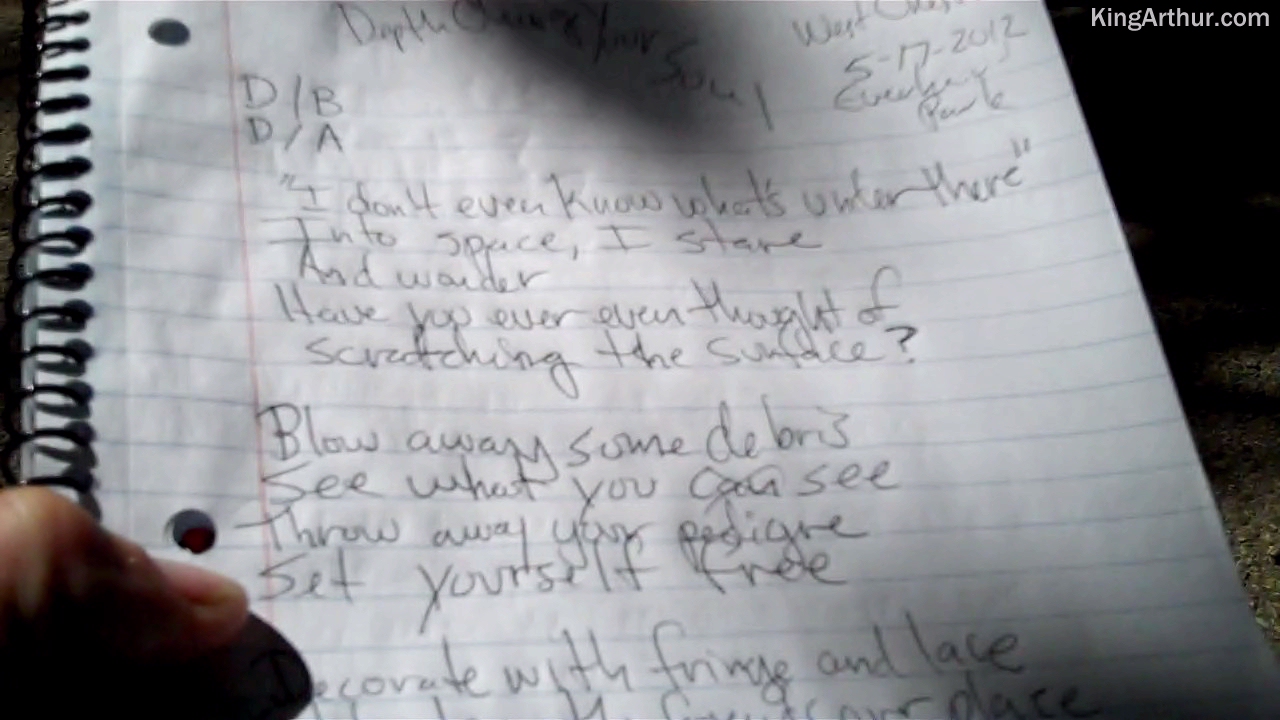 KingArthur.com
Depth Charge Your Soul
West
5-17-2012
Park
D/B
D/A
"I don't even know what's under there"
Into space, I stare
And wonder
Have you ever even thought of
scratching the surface?
Blow away some debris
See what you can see
Throw away your pedigre
Set yourself free
Decorate with fringe and lace
place